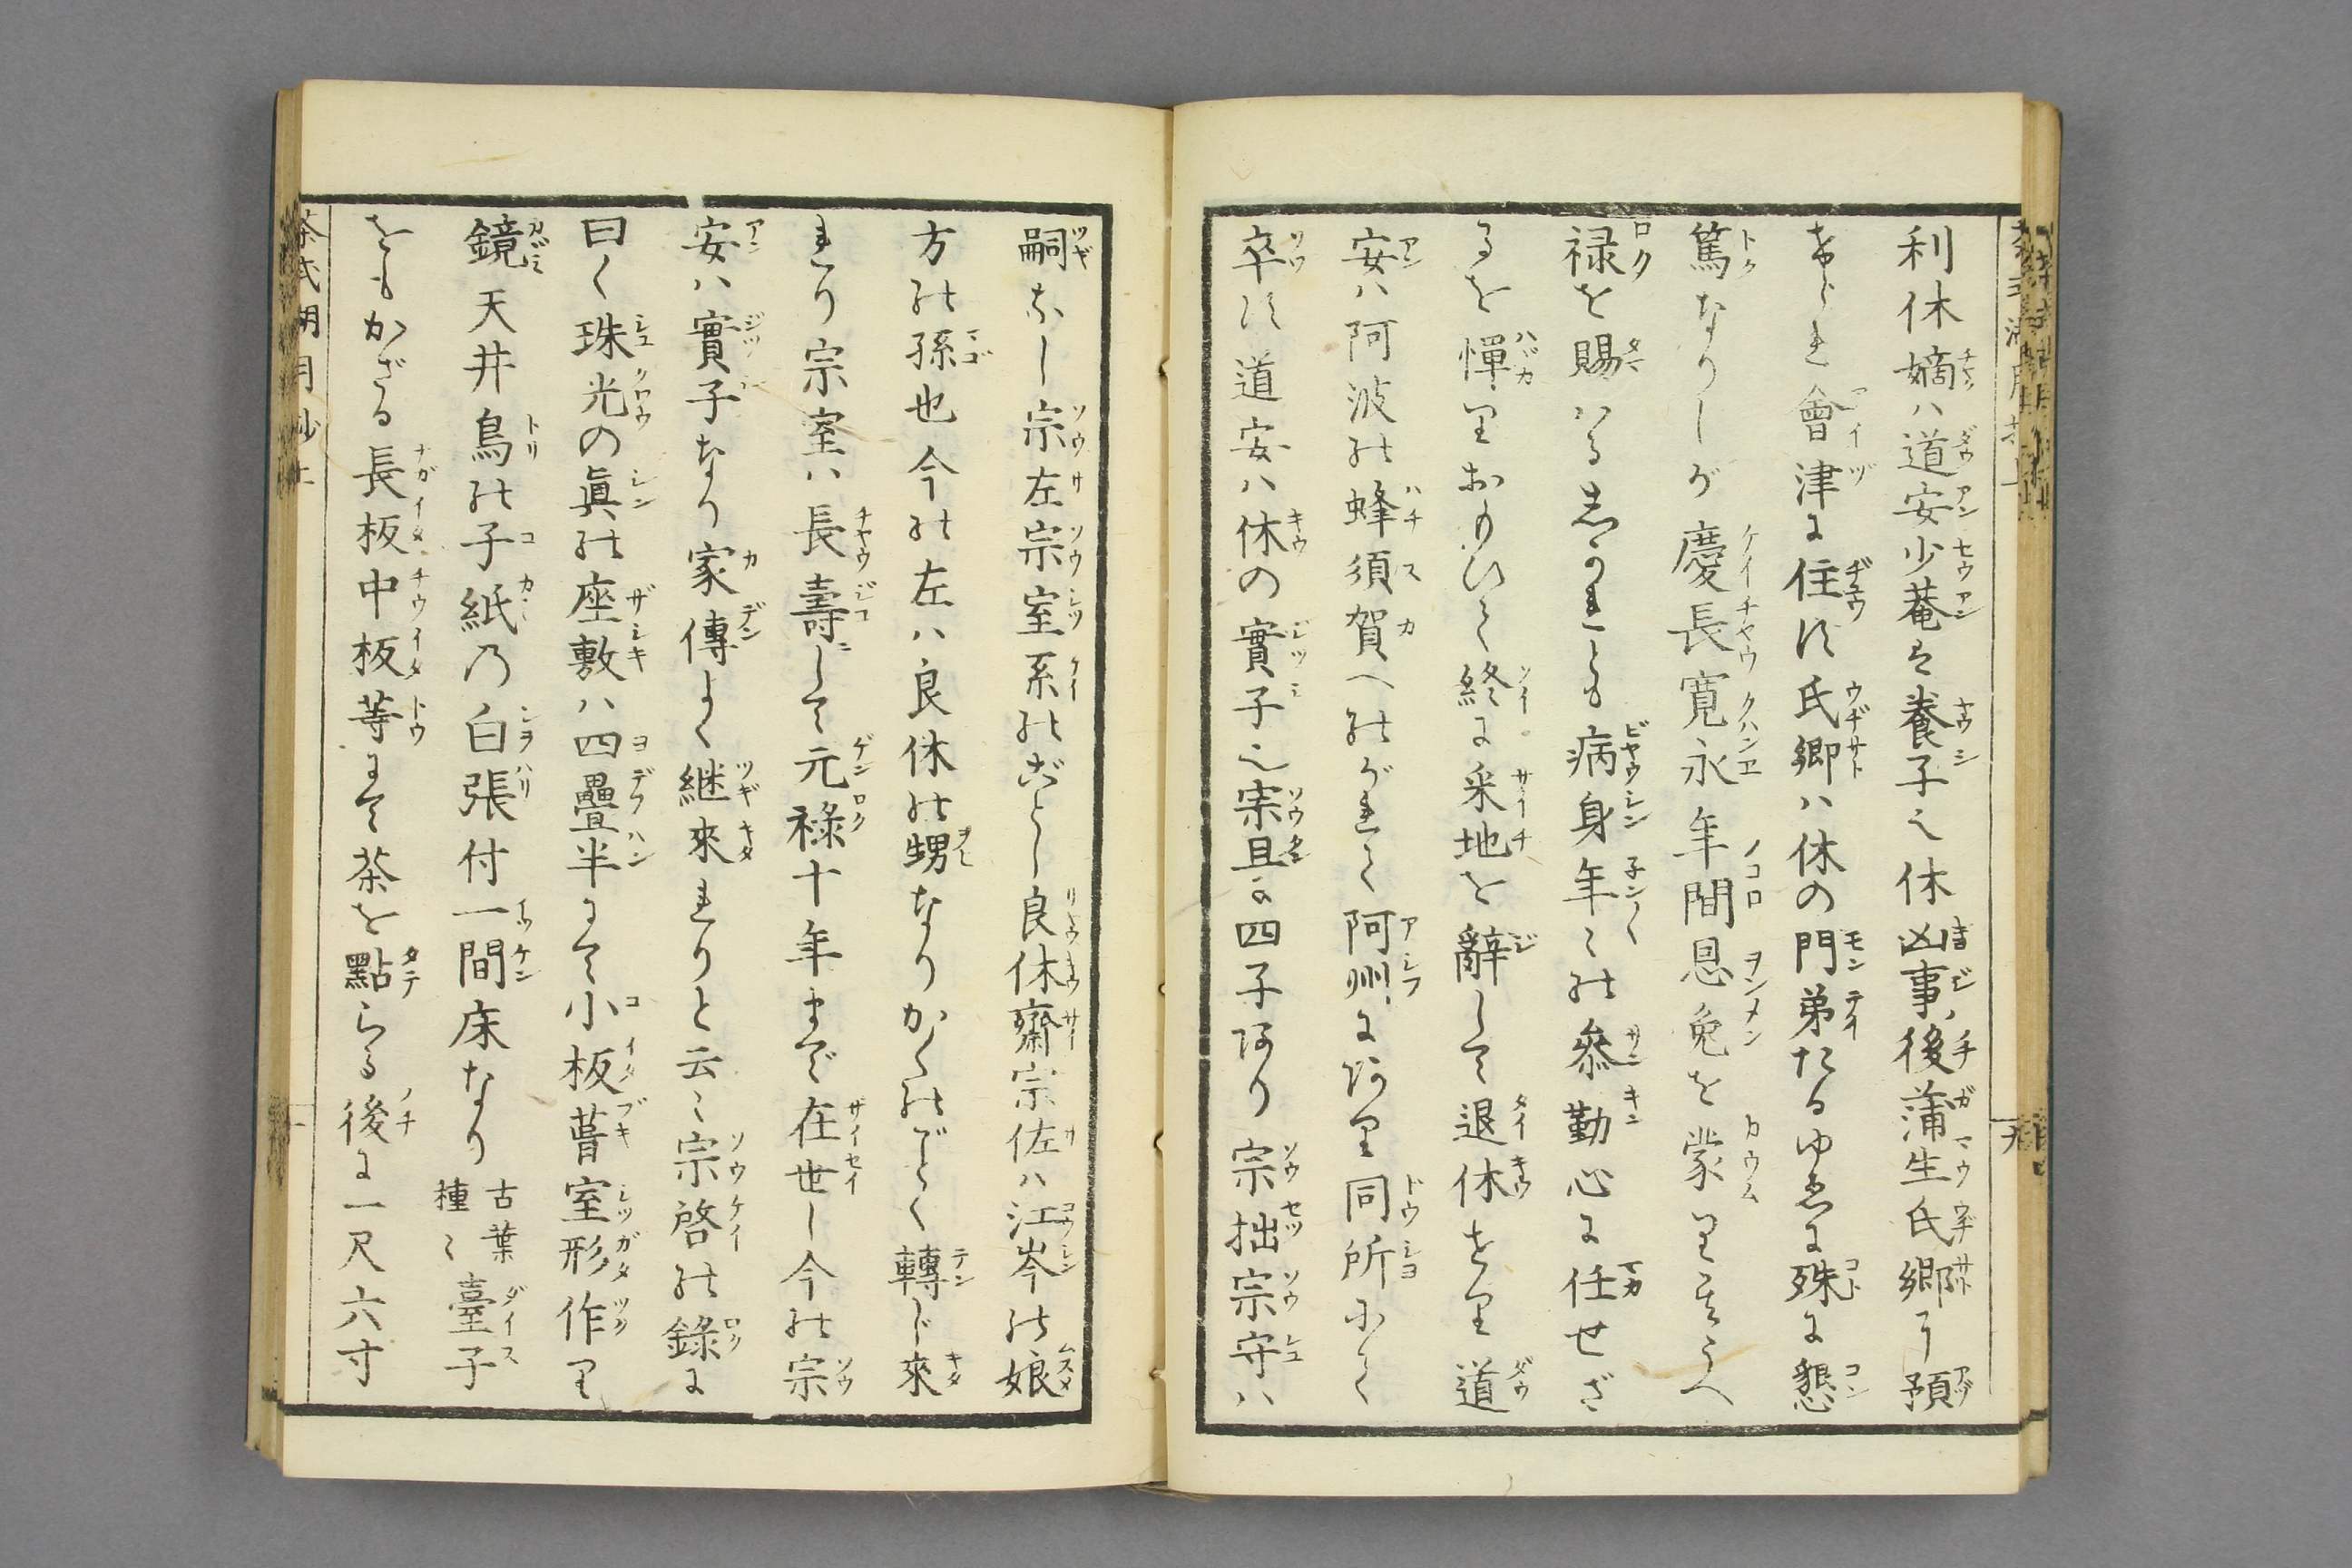 利休嫡ハ道安少菴は養子也休凶事後蒲生氏郷に預
けられ會津に住す氏郷ハ休の門弟たるゆゑに殊に懇
篤なりしが慶長寛永年間恩免を蒙り其うへ
禄を賜ハるしかれとも病身年〻の參勤心に任せざ
るを憚りおもひて終に采地を辭して退休せり道
安ハ阿波の蜂須賀へのがれて阿州にあり同所にて
卒す道安ハ休の實子也宗旦に四子あり宗拙宗守ハ
嗣なし宗左宗室系のごとし良休齋宗佐ハ江岑の娘
方の孫也今の左ハ良休の甥なりかくのごとく轉じ來
れり宗室ハ長壽して元禄十年まで在世し今の宗
安ハ實子なり家傳よく継來れりと云〻宗啓の錄に
曰く珠光の眞の座敷ハ四疊半にて小板葺室形作り
鏡天井鳥の子紙の白張付一間床なり古葉種〻臺子
をもかざる長板中板等にて茶を點らる後に一尺六寸
茶式湖月抄上